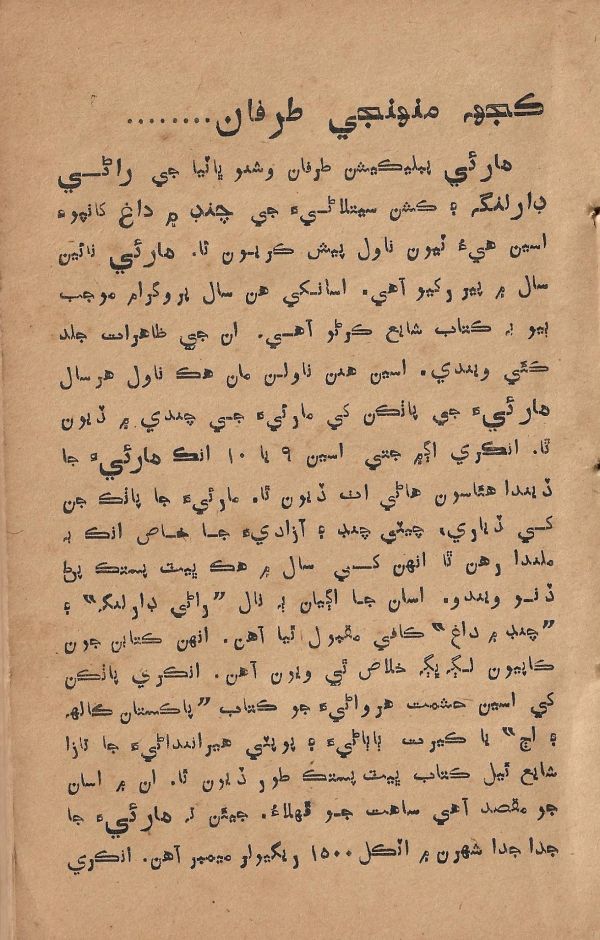 ڪجهه منهنجي طرفان........
مارئي پبليڪيشن طرفان وشنو ڀاٽيا جي راڻي
ڊارلنگ ۽ ڪشن سيتلاڻيءَ جي چنڊ ۾ داغ کانپوءِ
اسين هيءُ ٽيون ناول پيش ڪريون ٿا. مارئي نائين
سال ۾ پير رکيو آهي. اسانکي هن سال پروگرام موجب
ٻيو به ڪتاب شايع ڪرڻو آهي. ان جي ظاهرات جلد
ڪئي ويندي. اسين هنن ناولن مان هڪ ناول هر سال
مارئيءَ جي پاٺڪن کي مارئيءَ جي چندي ۾ ڏيون
ٿا. انڪري اڳ۾ جتي اسين ۹ يا ۱۰ انڪ مارئيءَ جا
ڏيندا هئاسون هاڻي اٺ ڏيون ٿا. مارئيءَ جا پاٺڪ جن
کي ڏياري، چيٽي چنڊ ۽ آزاديءَ جا خاص انڪ به
ملندا رهن ٿا انهن کي سال ۾ هڪ ڀيٽ پستڪ پڻ
ڏنو ويندو. اسان جا اڳيان ٻه نال ”راڻي ڊارلنگ“ ۽
”چنڊ ۾ داغ“ ڪافي مقبول ٿيا آهن. انهن ڪتابن جون
ڪاپيون لڳ ڀڳ خلاص ٿي ويون آهن. انڪري پاٺڪن
کي اسين حشمت هروائيءَ جو ڪتاب ”پاڪستان ڪالهه
۽ اڄ“ يا ڪيرت ٻاٻاڻيءَ ۽ پوپٽي هيرانندانيءَ جا تازا
شايع ٿيل ڪتاب ڀيٽ پستڪ طور ڏيون ٿا. ان ۾ اسان
جو مقصد آهي ساهت جو ڦهلاءُ. جيئن ته مارئيءَ جا
جدا جدا شهرن ۾ اٽڪل ۱۵۰۰ ريگيولر ميمبر آهن. انڪري